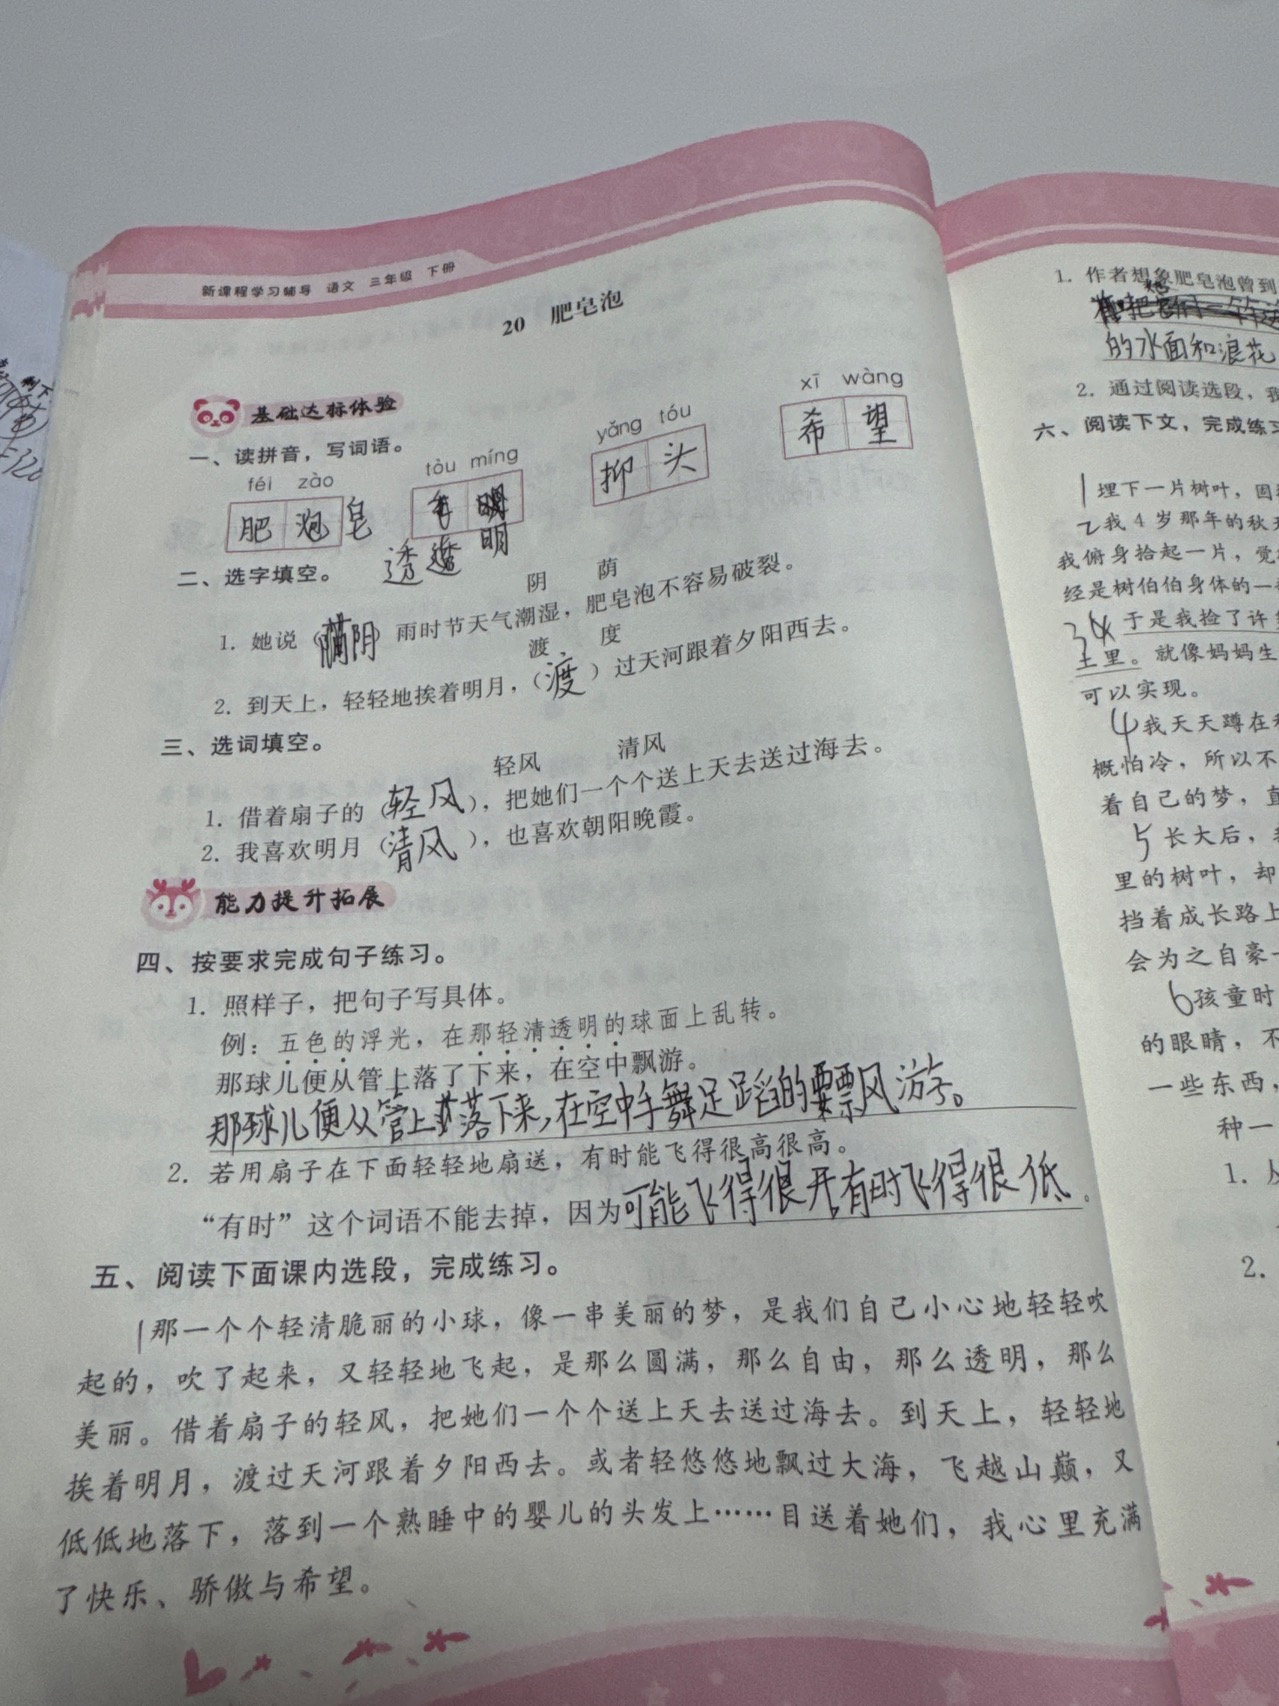 新课程学习辅导 语文 三年级 下册
20 肥皂泡
基础达标体验
一、读拼音，写词语。
féi zào
tòu míng
yǎng tóu
xī wàng
肥 泡 皂
抑 头
希 望
透 明
二、选字填空。
阴 荫
1. 她说（阴）雨时节天气潮湿，肥皂泡不容易破裂。
渡 度
2. 到天上，轻轻地挨着明月，（渡）过天河跟着夕阳西去。
三、选词填空。
轻风 清风
1. 借着扇子的（轻风），把她们一个个送上天去送过海去。
2. 我喜欢明月（清风），也喜欢朝阳晚霞。
能力提升拓展
四、按要求完成句子练习。
1. 照样子，把句子写具体。
例：五色的浮光，在那轻清透明的球面上乱转。
那球儿便从管上落了下来，在空中飘游。
那球儿便从管上落下来，在空中手舞足蹈的飘游。
2. 若用扇子在下面轻轻地扇送，有时能飞得很高很高。
“有时”这个词语不能去掉，因为可能飞得很，有时飞得很低。
五、阅读下面课内选段，完成练习。
1那一个个轻清脆丽的小球，像一串美丽的梦，是我们自己小心地轻轻吹
起的，吹了起来，又轻轻地飞起，是那么圆满，那么自由，那么透明，那么
美丽。借着扇子的轻风，把她们一个个送上天去送过海去。到天上，轻轻地
挨着明月，渡过天河跟着夕阳西去。或者轻悠悠地飘过大海，飞越山巅，又
低低地落下，落到一个熟睡中的婴儿的头发上……目送着她们，我心里充满
了快乐、骄傲与希望。
1. 作者想象肥皂泡曾到
的水面和浪花
2. 通过阅读选段，我
六、阅读下文，完成练习
1埋下一片树叶，因
2我4岁那年的秋天
我俯身拾起一片，觉
经是树伯伯身体的一
于是我捡了许
土里。就像妈妈生
可以实现。
4我天天蹲在
概怕冷，所以不
着自己的梦，直
5长大后，我
里的树叶，却
挡着成长路上
会为之自豪
6孩童时
的眼睛，不
一些东西，
种一
1. 从
2.